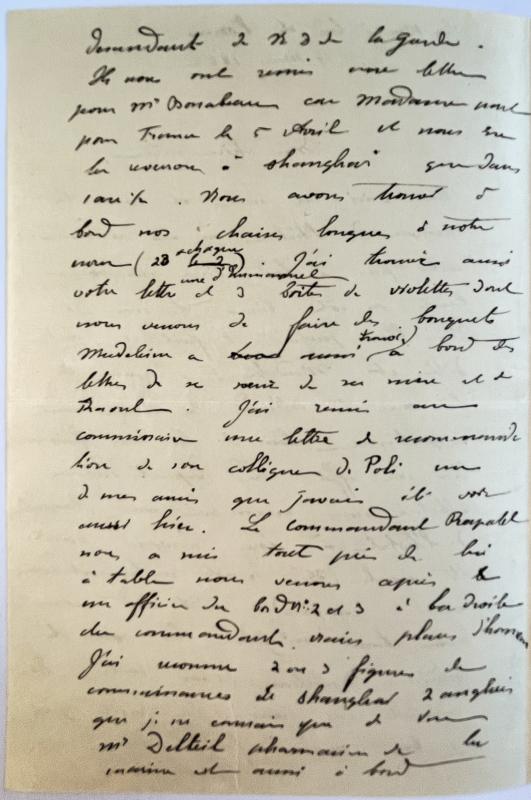 descendant de N D de la Garde.
Ils nous ont remis une lettre
pour Mr Bonabeau car Madame part
pour France le 5 Avril et nous ne
la verrons à Shanghaï que dans
. Nous avons trouvé à
bord nos chaises longues à notre
nom (23 chaque). J'ai trouvé aussi
une d'Emmanuel
votre lettre et 3 boîtes de violettes dont
nous venons de faire des bouquets
Madeleine a aussi trouvé à bord des
lettres de sa sœur de sa mère et de
Raoul. J'ai remis au
commissaire une lettre de recommanda
tion de son collègue de Poli un
de mes amis que j'avais été voir
aussi hier. Le commandant Rapatel
nous a mis tout près de lui
à table nous venons après
un officier du bord Nos 2 et 3 à la droite
du commandant vraies places d'honneur
J'ai reconnu 2 ou 3 figures de
connaissances de Shanghaï 2 anglais
que je ne connais que de vue
Mr Delteil pharmacien de la
marine est aussi à bord